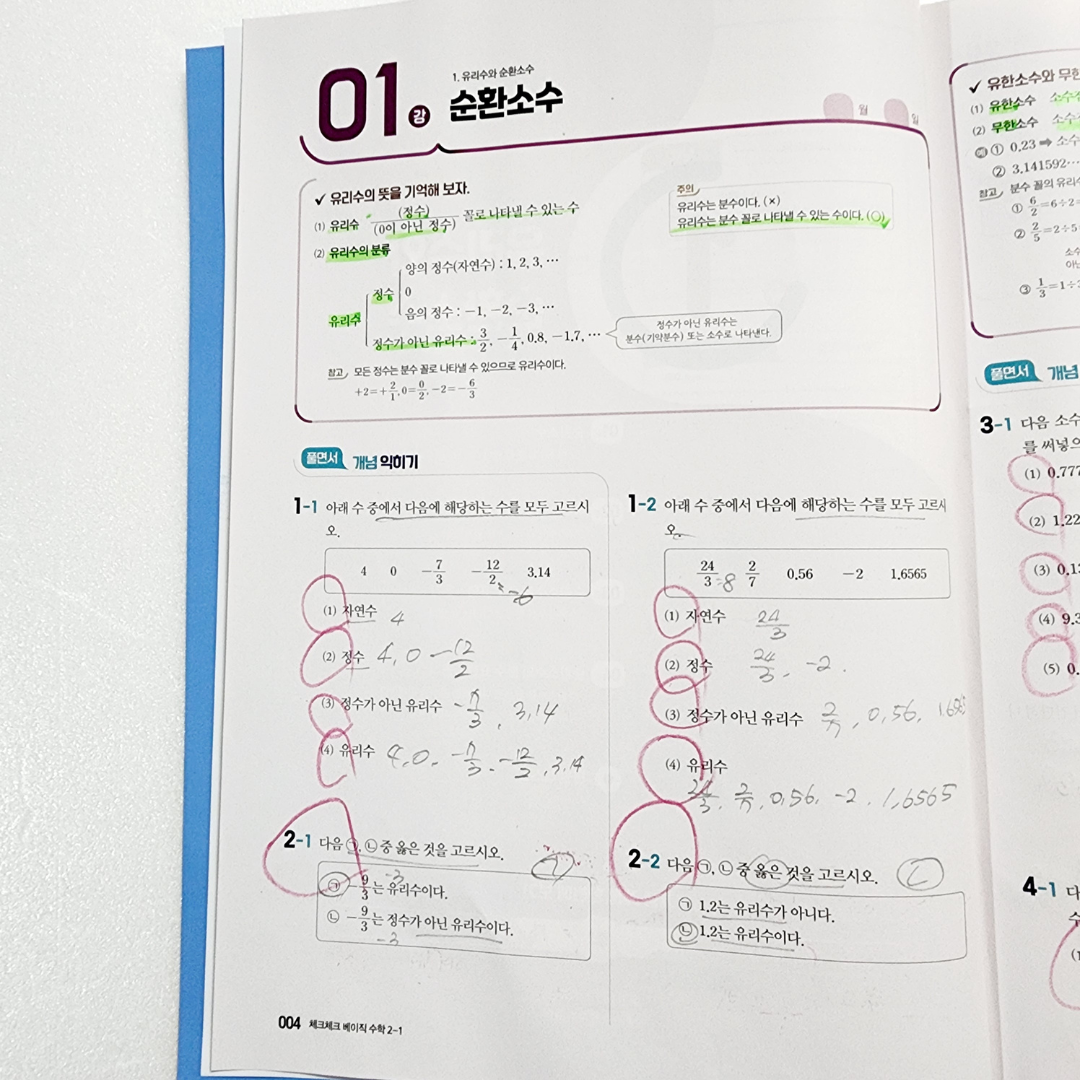 01강
1. 유리수와 순환소수
순환소수
월 일
✔ 유리수의 뜻을 기억해 보자.
(1) 유리수 (정수)/(0이 아닌 정수) 꼴로 나타낼 수 있는 수
(2) 유리수의 분류
유리수
정수
양의 정수(자연수) : 1, 2, 3, …
0
음의 정수 : −1, −2, −3, …
정수가 아닌 유리수 : 3/2, −1/4, 0.8, −1.7, …
정수가 아닌 유리수는
분수(기약분수) 또는 소수로 나타낸다.
참고 모든 정수는 분수 꼴로 나타낼 수 있으므로 유리수이다.
+2=+2/1, 0=0/2, −2=−6/3
주의
유리수는 분수이다. (×)
유리수는 분수 꼴로 나타낼 수 있는 수이다. (○)
풀면서 개념 익히기
1-1 아래 수 중에서 다음에 해당하는 수를 모두 고르시
오.
4 0 −7/3 −12/2 =-6 3.14
(1) 자연수 4
(2) 정수 4, 0 -12/2
(3) 정수가 아닌 유리수 -7/3, 3.14
(4) 유리수 4, 0, -7/3, -12/2, 3.14
2-1 다음 ㉠, ㉡ 중 옳은 것을 고르시오. ㄱ
-3
㉠ −9/3는 유리수이다.
㉡ −9/3는 정수가 아닌 유리수이다.
-3
1-2 아래 수 중에서 다음에 해당하는 수를 모두 고르시
오.
24/3 =8 2/7 0.56 −2 1.6565
(1) 자연수 24/3
(2) 정수 24/3, -2.
(3) 정수가 아닌 유리수 2/7, 0.56,
(4) 유리수
24/3, 2/7, 0.56, -2, 1.6565
2-2 다음 ㉠, ㉡ 중 옳은 것을 고르시오. ㄴ
㉠ 1.2는 유리수가 아니다.
㉡ 1.2는 유리수이다.
004 체크체크 베이직 수학 2-1
✔ 유한소수와 무한
(1) 유한소수
(2) 무한소수
예 ① 0.23 ➡ 소수
② 3.141592…
참고 분수 꼴의 유리수
① 6/2=6÷2=
② 2/5=2÷5
③ 1/3=1÷
풀면서 개념
3-1 다음 소수
를 써넣으
(1) 0.777
(2) 1.22
(3) 0.1
(4) 9.3
(5) 0.
4-1 다
수